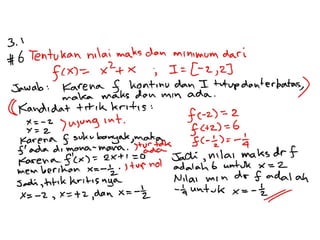 3.1
#6 Tentukan nilai maks dan minimum dari
f(x) = x² + x ; I = [-2,2]
Jawab: Karena f kontinu dan I tutup dan terbatas,
maka maks dan min ada.
Kandidat titik kritis:
x = -2
x = 2 } ujung int.
Karena f suku banyak, maka
f' ada di mana-mana. } tur tdk ada
Karena f'(x) = 2x+1 = 0
memberikan x = -½. } tur nol
Jadi, titik kritisnya
x = -2, x = +2, dan x = -½
f(-2) = 2
f(+2) = 6
f(-½) = -¼
Jadi, nilai maks dr f
adalah 6 untuk x = 2
Nilai min dr f adalah
-¼ untuk x = -½